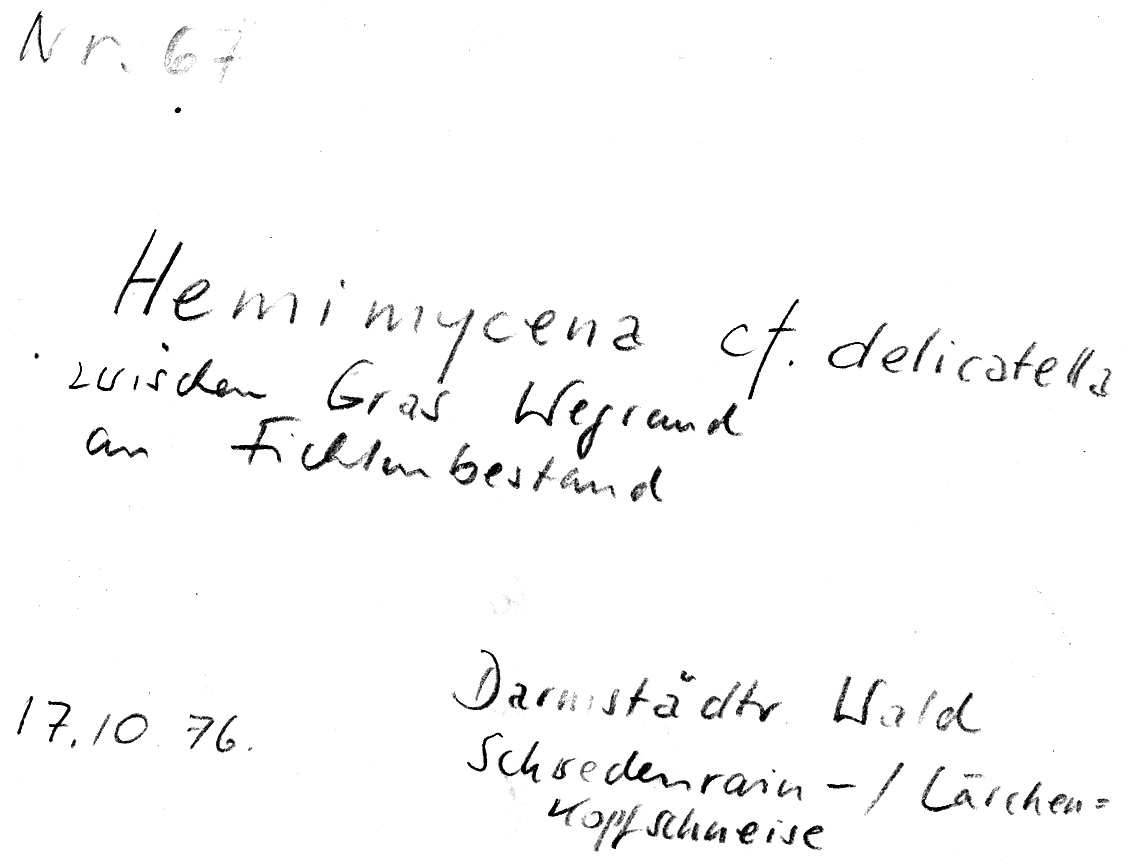 Nr. 67
Hemimycena cf. delicatella
zwischen Gras Wegrand
an Fichtenbestand
17.10 76.
Darmstädtr Wald
Schwedenrain-/Lärchen=
kopfschneise